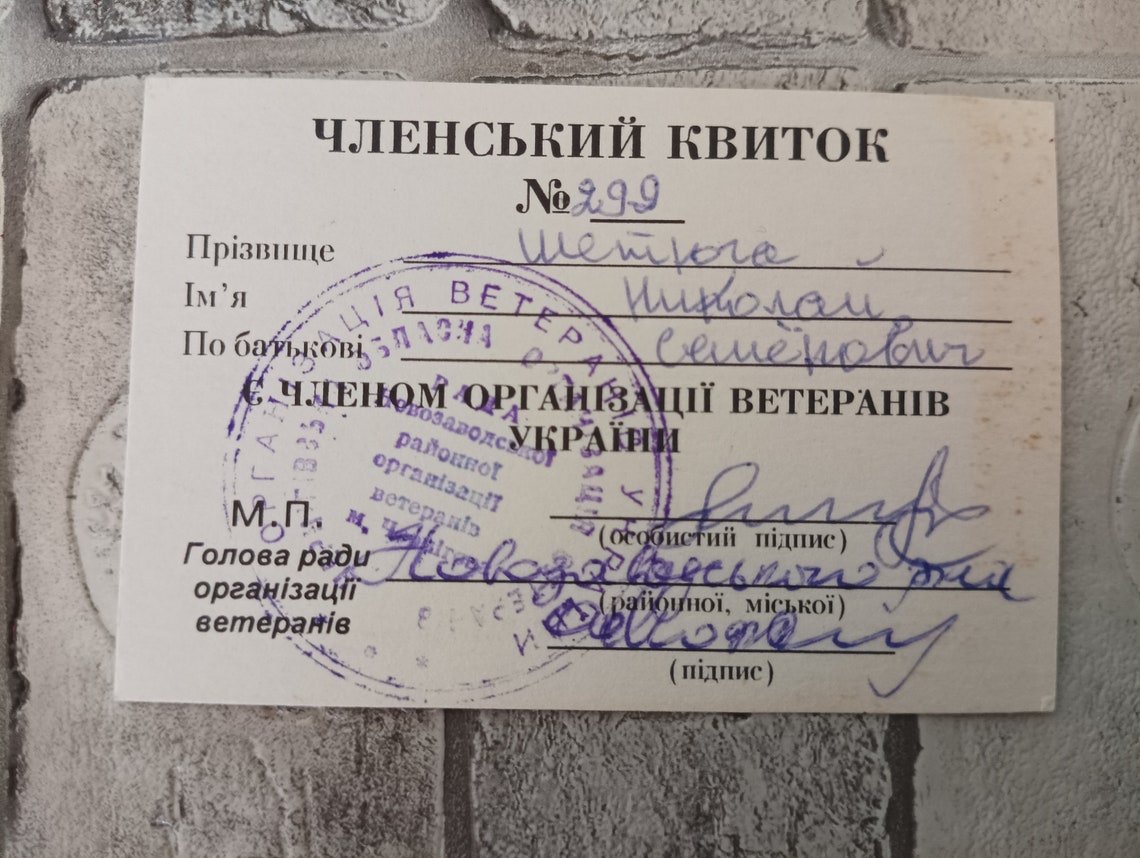 ЧЛЕНСЬКИЙ КВИТОК
№ 299
Прізвище
Ім'я Николай
По батькові Семёнович
Є ЧЛЕНОМ ОРГАНІЗАЦІЇ ВЕТЕРАНІВ
УКРАЇНИ
М.П.
(особистий підпис)
Голова ради
організації
ветеранів
Новозаводського р-на
(районної, міської)
(підпис)
ОРГАНІЗАЦІЯ ВЕТЕРАНІВ УКРАЇНИ
ОБЛАСНА ОРГАНІЗАЦІЯ
РАДА
Новозаводської
районної
організації
ветеранів